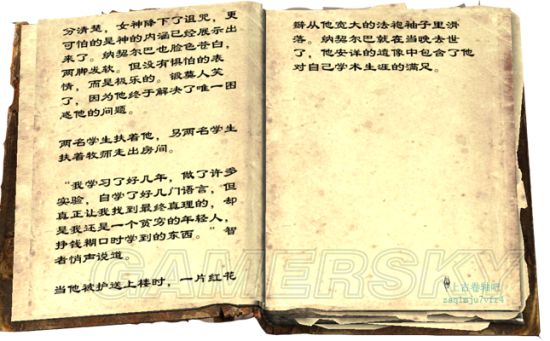 分清楚，女神降下了诅咒，更
可怕的是神的内涵已经展示出
来了。纳契尔巴也脸色苍白，
两脚发软。但没有惧怕的表
情，而是极乐的。锻莫人笑
了，因为他终于解决了唯一困
惑他的问题。
两名学生扶着他，另两名学生
扶着牧师走出房间。
“我学习了好几年，做了许多
实验，自学了好几门语言，但
真正让我找到最终真理的，却
是我还是一个贫穷的年轻人，
挣钱糊口时学到的东西。”智
者悄声说道。
当他被护送上楼时，一片红花
瓣从他宽大的法袍袖子里滑
落。纳契尔巴就在当晚去世
了，他安详的遗像中包含了他
对自己学术生涯的满足。
GAMERSKY
上古卷轴吧